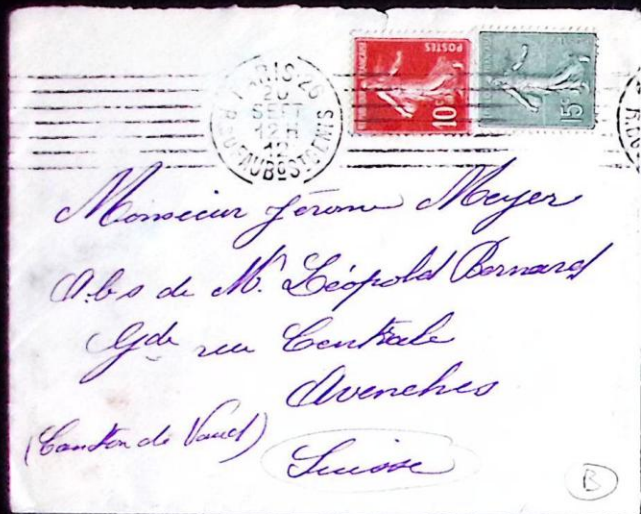 PARIS-26
20
SEPT
12 H
R. DU FAUBG ST DENIS
POSTES
10c
15c
Monsieur Jérome Meyer
Abs de Mr. Léopold Bernard
Gde rue Centrale
Avenches
(Canton de Vaud)
Suisse
B